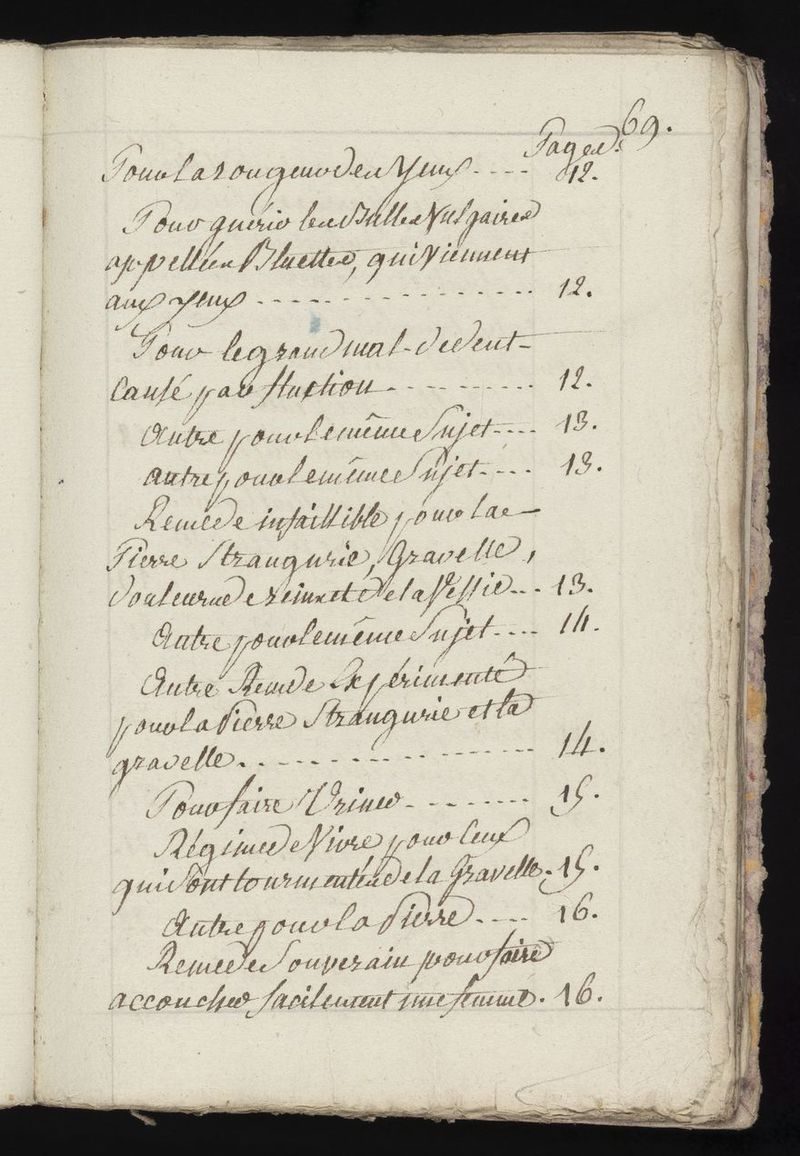 69.
Pages.
Pour la rougeur des Yeux .... 12.
Pour guérir les Bulles Vulgaires
appellées Bluettes, qui Viennent
aux yeux ................ 12.
Pour le grand mal de dent
Causé par fluction .......... 12.
Autre pour le même Sujet .... 13.
autre pour le même Sujet .... 13.
Remede infaillible pour la
Pierre Strangurie, Gravelle,
douleurs de reins et de la Vessie ... 13.
Autre pour le même Sujet .... 14.
Autre Remede Expérimenté
pour la Pierre Strangurie et la
gravelle ................ 14.
Pour faire Uriner ........ 15.
Régime de Vivre pour Ceux
qui Sont tourmentés de la Gravelle . 15.
Autre pour la Pierre .... 16.
Remede Souverain pour faire
accoucher facilement une femme . 16.